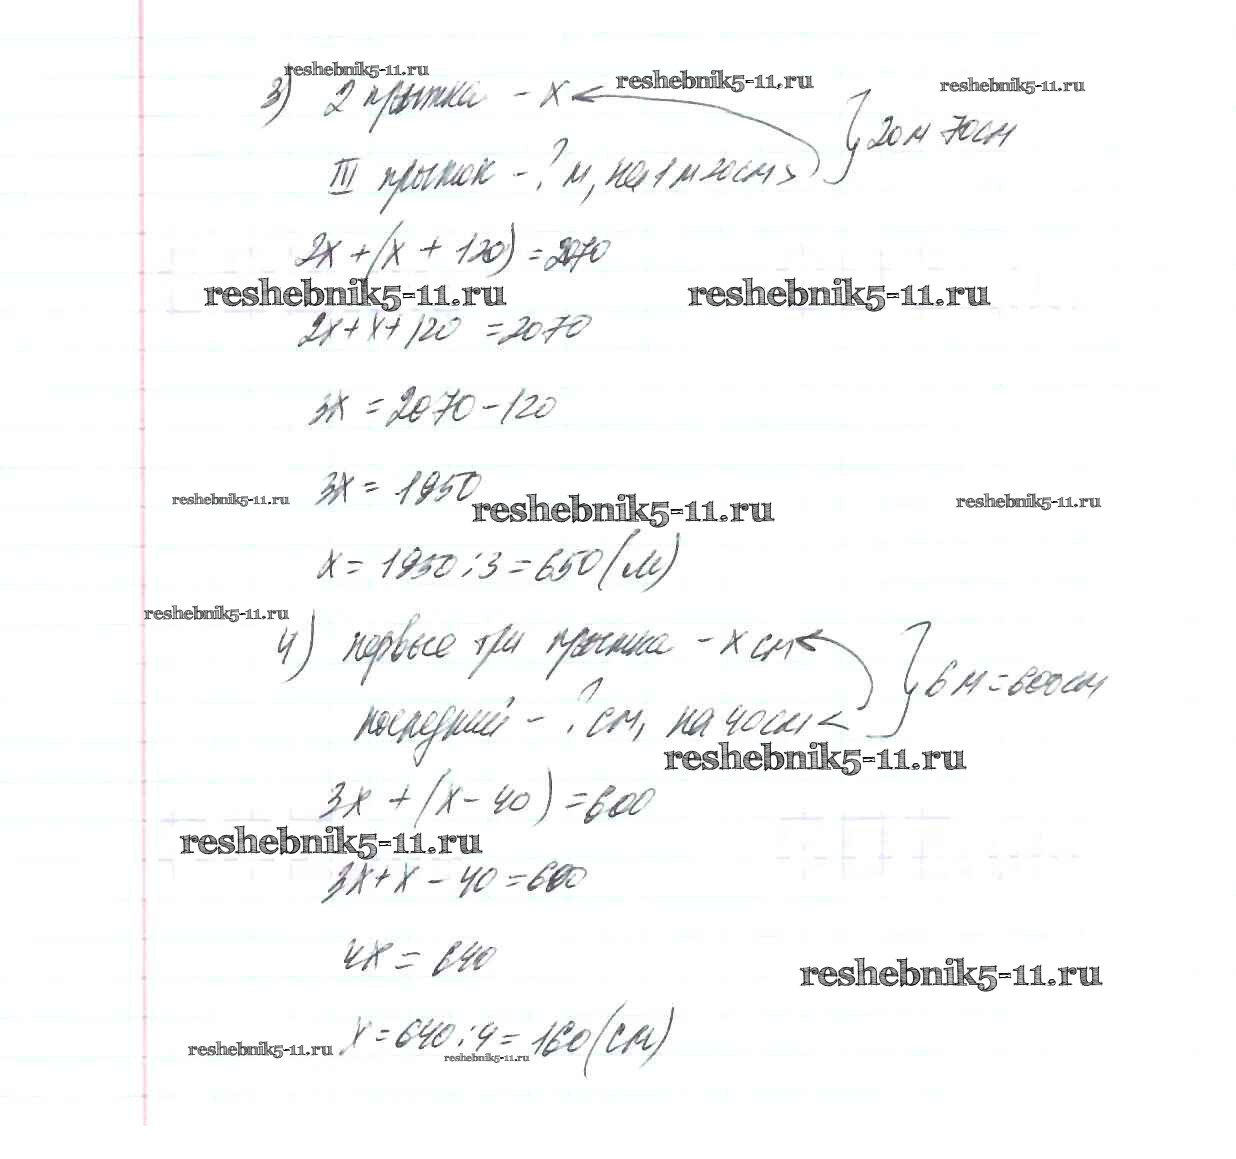 reshebnik5-11.ru
reshebnik5-11.ru
reshebnik5-11.ru
3) 2 прыжка - x
20м 70см
III прыжок - ? м, на 1 м 20см >
2x + (x + 120) = 2070
reshebnik5-11.ru
reshebnik5-11.ru
2x + x + 120 = 2070
3x = 2070 - 120
3x = 1950
reshebnik5-11.ru
reshebnik5-11.ru
reshebnik5-11.ru
x = 1950 : 3 = 650 (м)
reshebnik5-11.ru
4) первые три прыжка - x см
6 м = 600см
последний - ? см, на 40см <
reshebnik5-11.ru
3x + (x - 40) = 600
reshebnik5-11.ru
3x + x - 40 = 600
4x = 640
reshebnik5-11.ru
x = 640 : 4 = 160 (см)
reshebnik5-11.ru
reshebnik5-11.ru